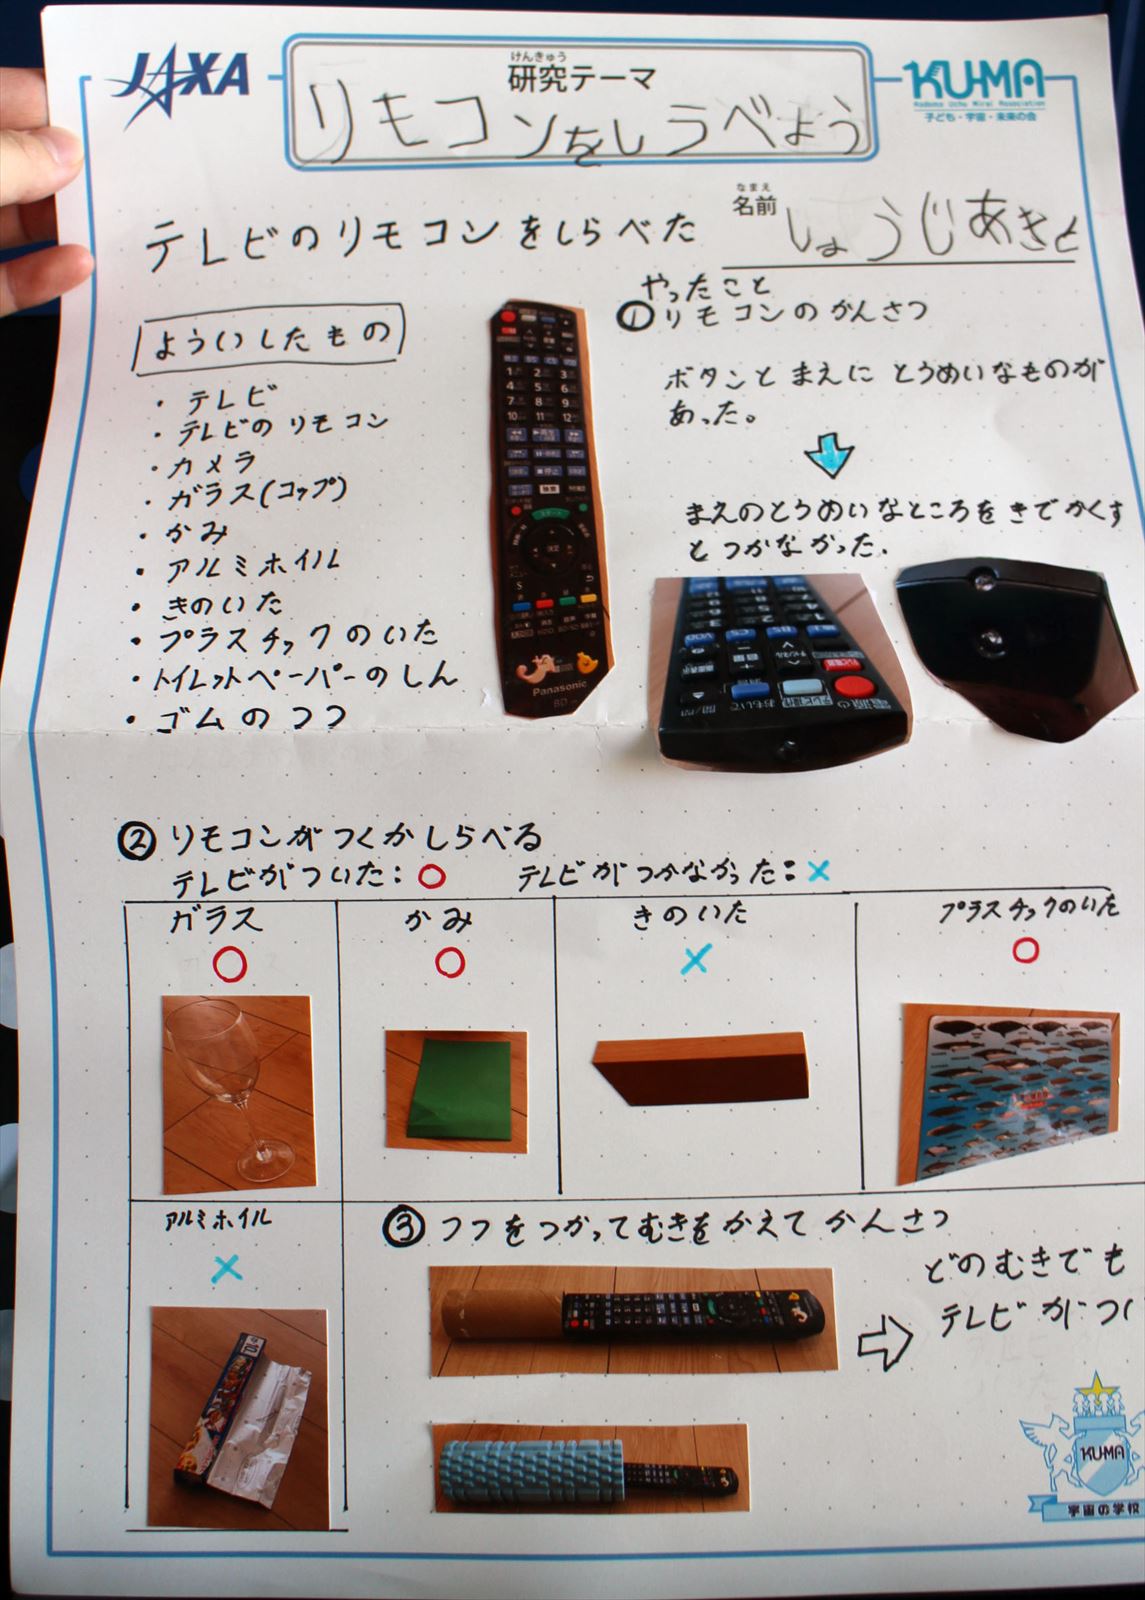 JAXA
けんきゅう
研究テーマ
リモコンをしらべよう
KUMA
Kodomo Uchu Mirai Association
子ども・宇宙・未来の会
なまえ
名前
しょうじあきと
テレビのリモコンをしらべた
よういしたもの
・テレビ
・テレビのリモコン
・カメラ
・ガラス(コップ)
・かみ
・アルミホイル
・きのいた
・プラスチックのいた
・トイレットペーパーのしん
・ゴムのつつ
Panasonic
やったこと
①リモコンのかんさつ
ボタンとまえにとうめいなものが
あった。
まえのとうめいなところをきでかくす
とつかなかった.
②リモコンがつくかしらべる
テレビがついた:○ テレビがつかなかった:×
ガラス
○
かみ
○
きのいた
×
プラスチックのいた
○
アルミホイル
×
③つつをつかってむきをかえてかんさつ
どのむきでも
テレビがつ
KUMA
宇宙の学校